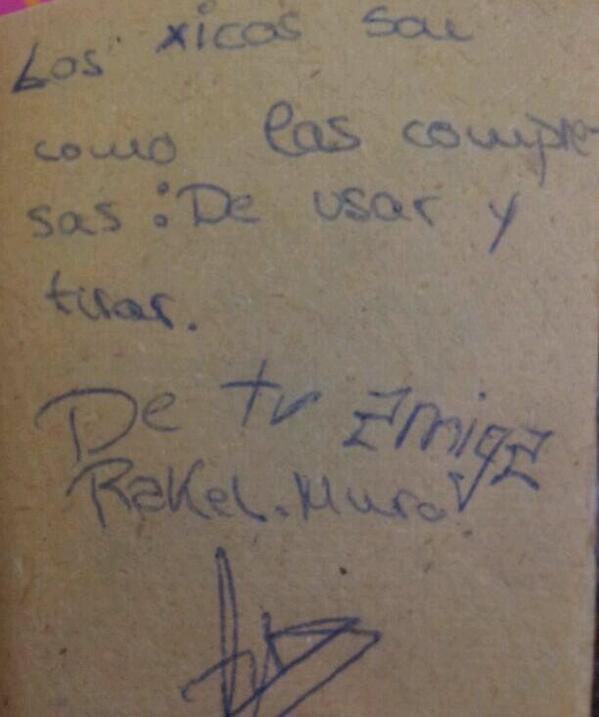 Los xicos son
como las compre-
sas: De usar y
tirar.
De tu amiga
Rakel. Muro